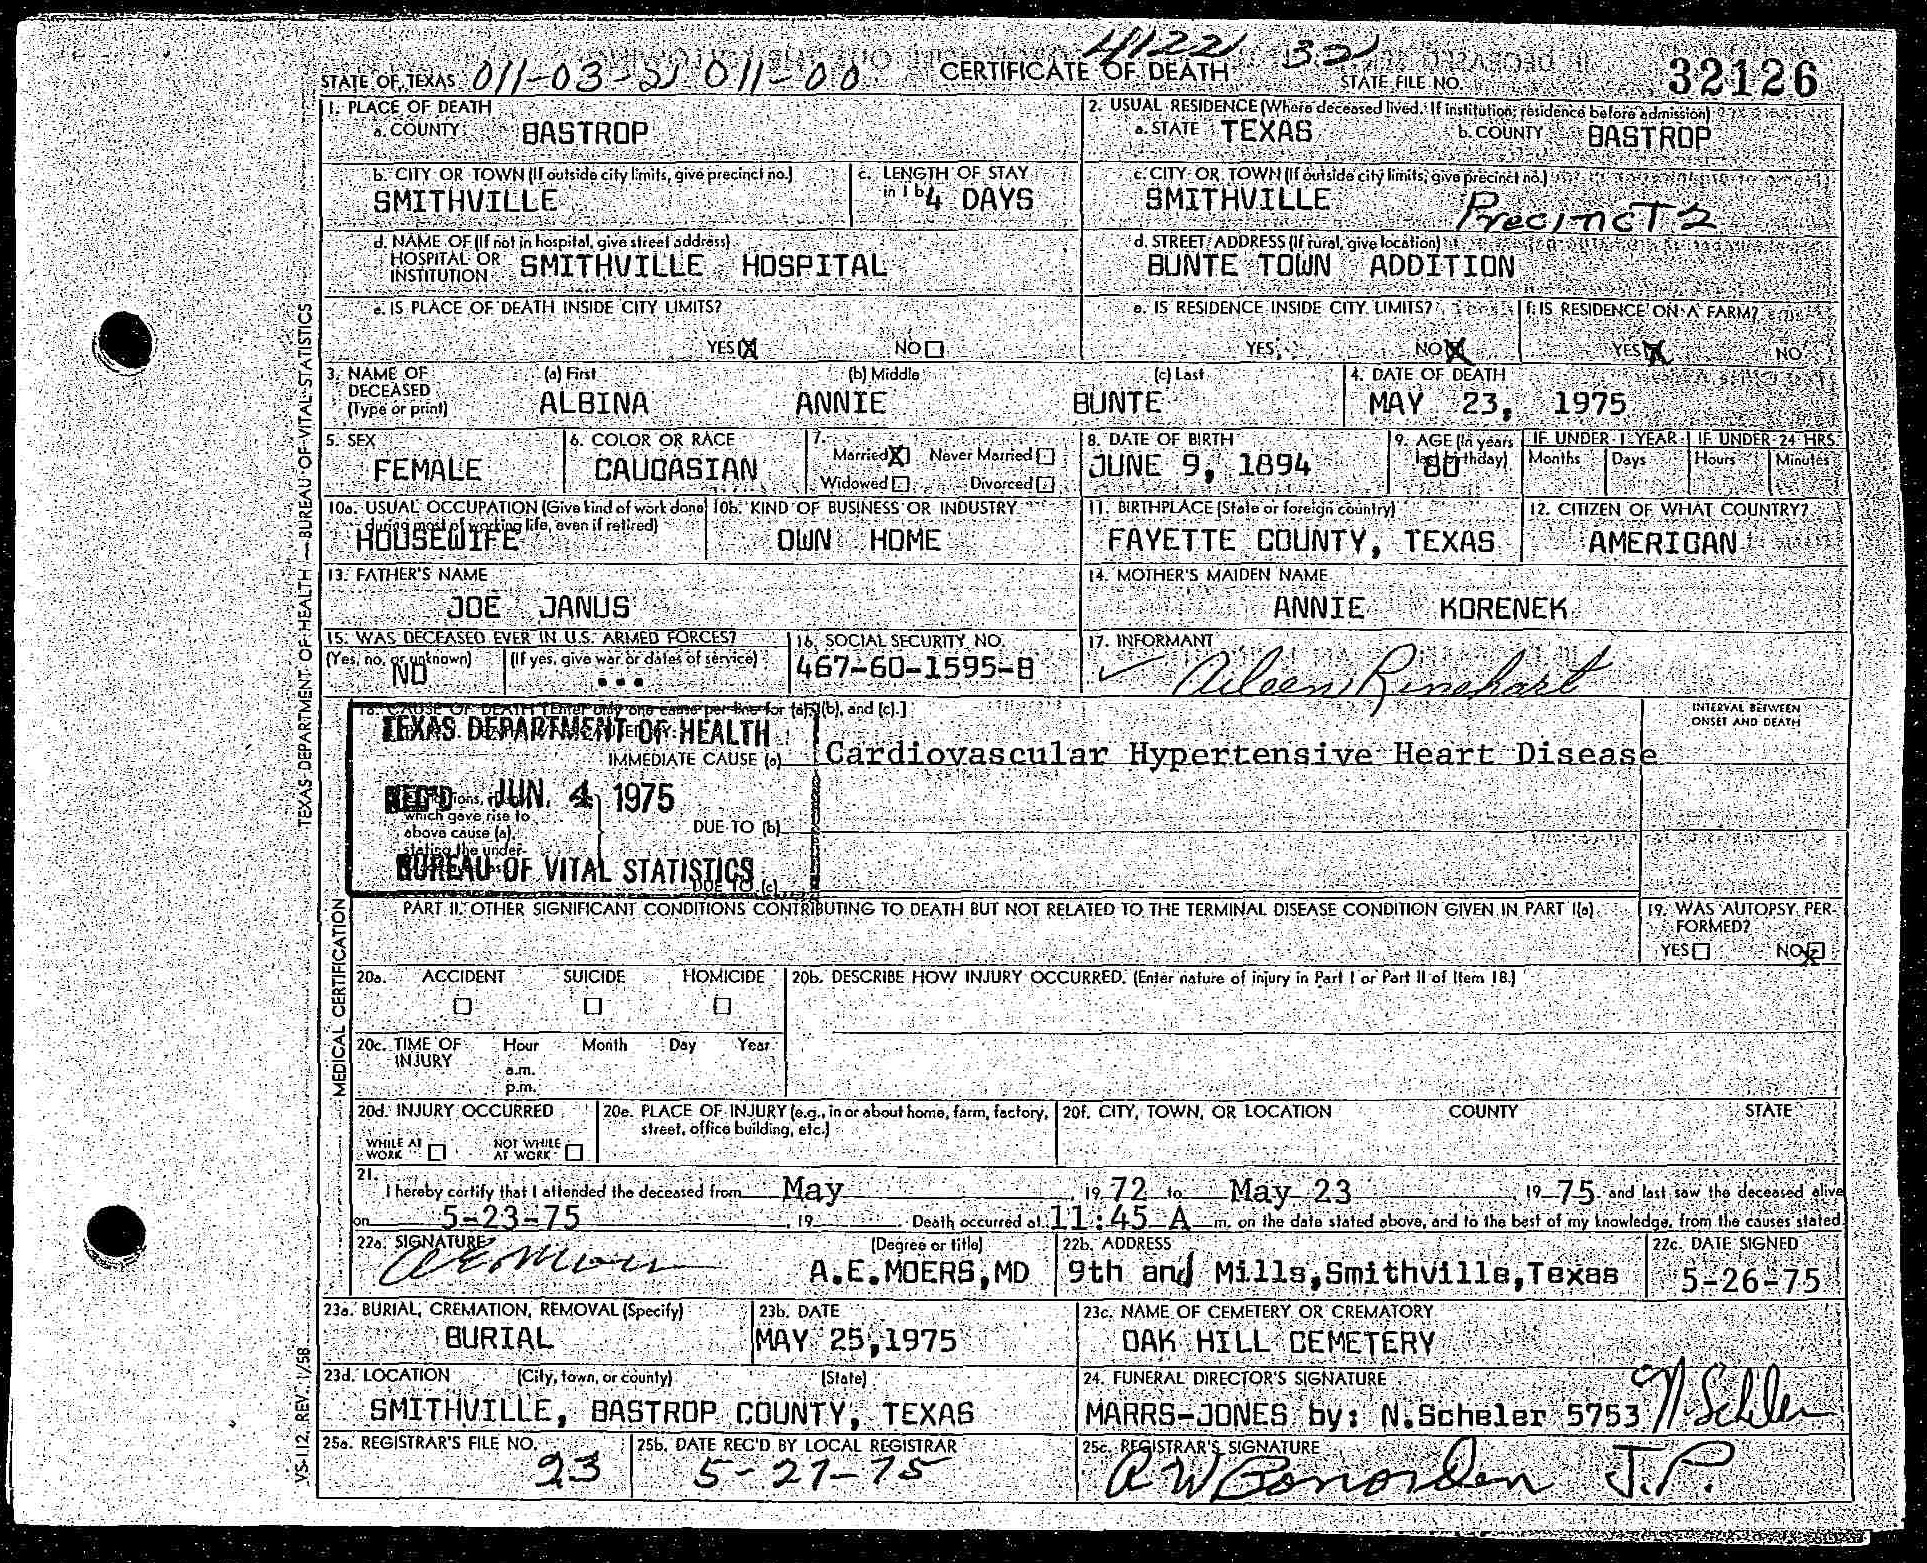 STATE OF TEXAS 011-03-2 011-00 CERTIFICATE OF DEATH 41221 32 STATE FILE NO. 32126
1. PLACE OF DEATH
a. COUNTY BASTROP
2. USUAL RESIDENCE (Where deceased lived. If institution, residence before admission)
a. STATE TEXAS b. COUNTY BASTROP
b. CITY OR TOWN (If outside city limits, give precinct no.)
SMITHVILLE
c. LENGTH OF STAY
in 1b 4 DAYS
c. CITY OR TOWN (If outside city limits, give precinct no.)
SMITHVILLE Precinct 2
d. NAME OF (If not in hospital, give street address)
HOSPITAL OR
INSTITUTION SMITHVILLE HOSPITAL
d. STREET ADDRESS (If rural, give location)
BUNTE TOWN ADDITION
e. IS PLACE OF DEATH INSIDE CITY LIMITS?
YES X NO
e. IS RESIDENCE INSIDE CITY LIMITS?
YES NO X
f. IS RESIDENCE ON A FARM?
YES X NO
3. NAME OF
DECEASED
(Type or print)
(a) First (b) Middle (c) Last
ALBINA ANNIE BUNTE
4. DATE OF DEATH
MAY 23, 1975
5. SEX
FEMALE
6. COLOR OR RACE
CAUCASIAN
7.
Married X Never Married
Widowed Divorced
8. DATE OF BIRTH
JUNE 9, 1894
9. AGE (In years
last birthday)
80
IF UNDER 1 YEAR IF UNDER 24 HRS.
Months Days Hours Minutes
10a. USUAL OCCUPATION (Give kind of work done
during most of working life, even if retired)
HOUSEWIFE
10b. KIND OF BUSINESS OR INDUSTRY
OWN HOME
11. BIRTHPLACE (State or foreign country)
FAYETTE COUNTY, TEXAS
12. CITIZEN OF WHAT COUNTRY?
AMERICAN
13. FATHER'S NAME
JOE JANUS
14. MOTHER'S MAIDEN NAME
ANNIE KORENEK
15. WAS DECEASED EVER IN U.S. ARMED FORCES?
(Yes, no, or unknown) (If yes, give war or dates of service)
NO ...
16. SOCIAL SECURITY NO.
467-60-1595-B
17. INFORMANT
Aileen Rinehart
18. CAUSE OF DEATH [Enter only one cause per line for (a), (b), and (c).]
INTERVAL BETWEEN
ONSET AND DEATH
TEXAS DEPARTMENT OF HEALTH
IMMEDIATE CAUSE (a) Cardiovascular Hypertensive Heart Disease
REC'D JUN. 4 1975
which gave rise to
above cause (a),
stating the under-
DUE TO (b)
BUREAU OF VITAL STATISTICS
DUE TO (c)
PART II. OTHER SIGNIFICANT CONDITIONS CONTRIBUTING TO DEATH BUT NOT RELATED TO THE TERMINAL DISEASE CONDITION GIVEN IN PART I(a)
19. WAS AUTOPSY PER-
FORMED?
YES NO X
20a. ACCIDENT SUICIDE HOMICIDE
20b. DESCRIBE HOW INJURY OCCURRED. (Enter nature of injury in Part I or Part II of Item 18.)
20c. TIME OF
INJURY
Hour Month Day Year
a.m.
p.m.
20d. INJURY OCCURRED
WHILE AT
WORK
NOT WHILE
AT WORK
20e. PLACE OF INJURY (e.g., in or about home, farm, factory,
street, office building, etc.)
20f. CITY, TOWN, OR LOCATION COUNTY STATE
21.
I hereby certify that I attended the deceased from May 19 72 to May 23 19 75 and last saw the deceased alive
on 5-23-75 19 Death occurred at 11:45 A m. on the date stated above, and to the best of my knowledge, from the causes stated.
22a. SIGNATURE (Degree or title)
A.E.MOERS,MD
22b. ADDRESS
9th and Mills,Smithville,Texas
22c. DATE SIGNED
5-26-75
23a. BURIAL, CREMATION, REMOVAL (Specify)
BURIAL
23b. DATE
MAY 25,1975
23c. NAME OF CEMETERY OR CREMATORY
OAK HILL CEMETERY
23d. LOCATION (City, town, or county) (State)
SMITHVILLE, BASTROP COUNTY, TEXAS
24. FUNERAL DIRECTOR'S SIGNATURE
MARRS-JONES by: N.Scheler 5753 N. Scheler
25a. REGISTRAR'S FILE NO.
23
25b. DATE REC'D BY LOCAL REGISTRAR
5-27-75
25c. REGISTRAR'S SIGNATURE
A W Bonorden J.P.
TEXAS DEPARTMENT OF HEALTH — BUREAU OF VITAL STATISTICS
MEDICAL CERTIFICATION
VS-112, REV. 1/58